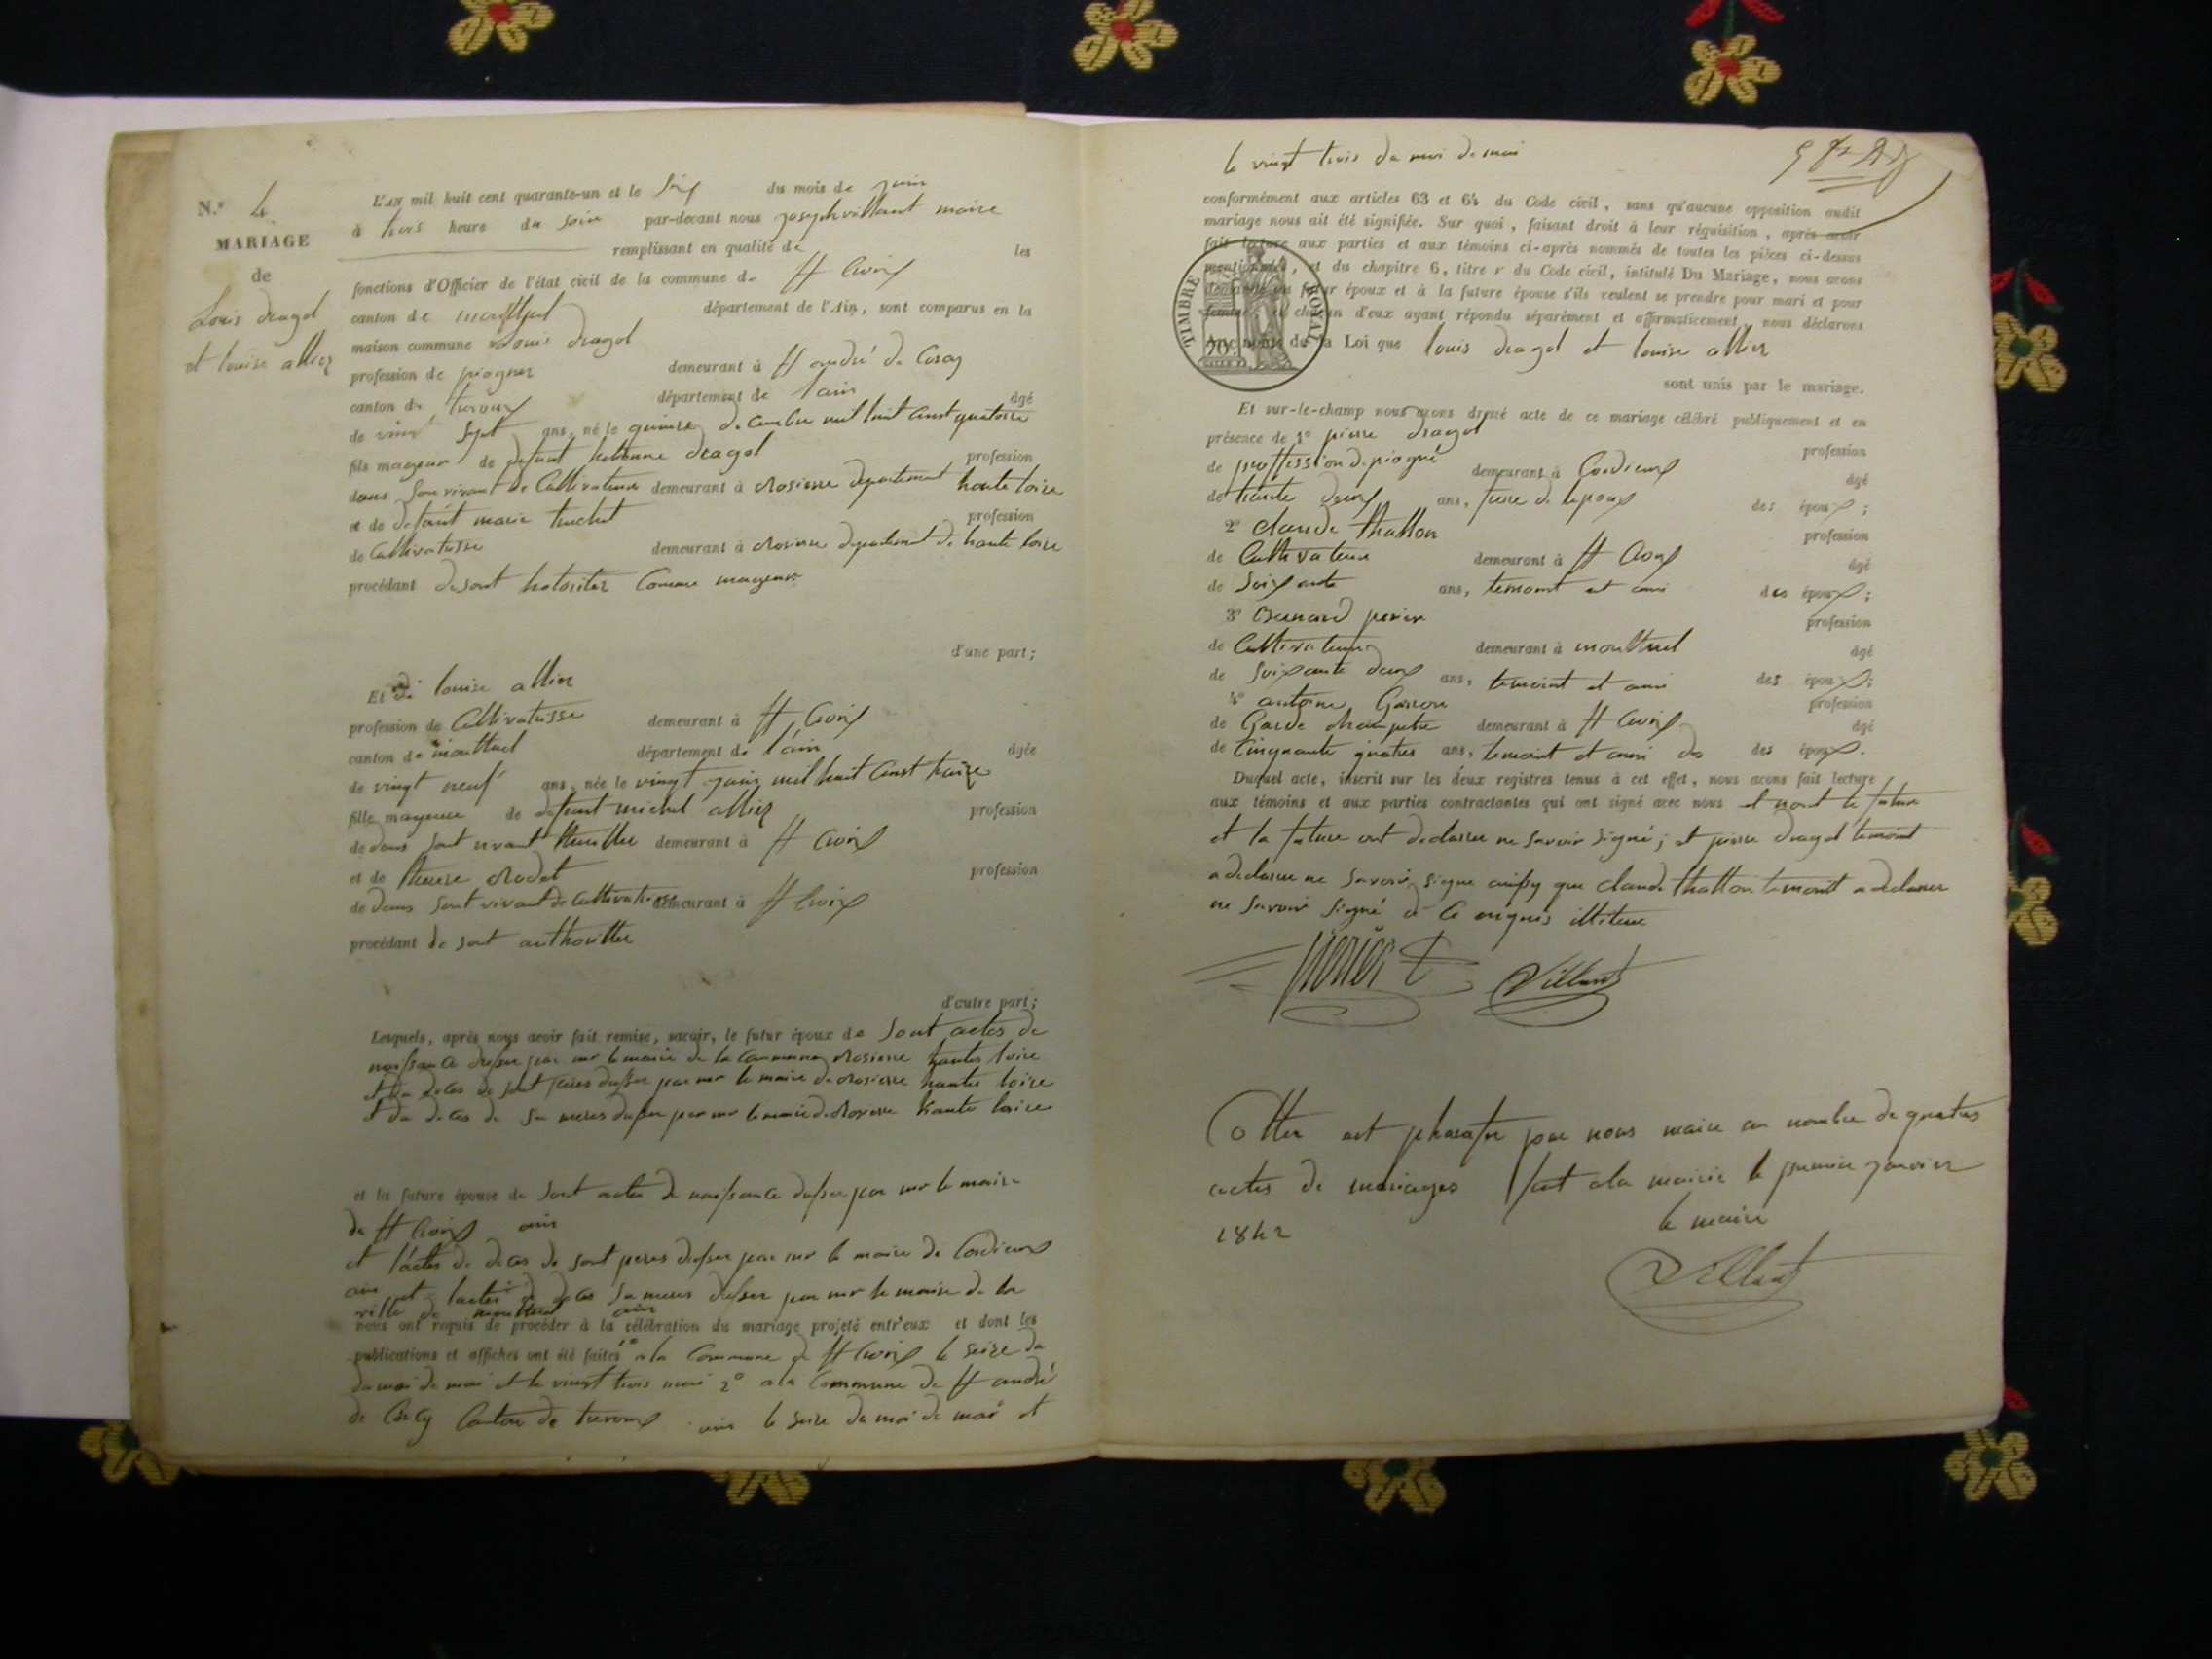 N.° 4
MARIAGE
de
Louis dragol
et louise allier
L'AN mil huit cent quarante-un et le six du mois de juin
à trois heure du soir par-devant nous joseph villant maire
remplissant en qualité de les
fonctions d'Officier de l'état civil de la commune de St Croix
canton de département de l'Ain, sont comparus en la
maison commune Louis dragol
profession de demeurant à St andré de
canton de trevoux département de lain âgé
de vint sept ans, né le quinze decembre mil huit quatorze
fils mageur de defunt dragol profession
dans son vivant de Cultivateur demeurant à rosierre departement haute loire
et de defunt marie profession
de Cultivatrisse demeurant à rosierre departement de haute loire
procédant de sont Comme mageur
d'une part;
Et de louise allier
profession de Cultivatrisse demeurant à St Croix
canton de montluel département de l'ain âgée
de vingt neuf ans, née le vingt juin mil huit
fille mageure de defunt michel allier profession
de dans sont vivant demeurant à St Croix
et de profession
de dans sont vivant de Cultivatrisse demeurant à St Croix
procédant de sont authoritter
d'autre part;
Lesquels, après nous avoir fait remise, savoir, le futur époux de sont actes de
naissance par mr le maire de la Commune rosierre hautes loire
et du deces de sont peres par mr le maire de rosierre hautes loire
et du deces de sa meres par mr le maire de rosierre haute loire
et la future épouse de sont actes de naissance par mr le maire
de St Croix ain
et l'actes de deces de sont peres par mr le maire de Cordieux
ain et lactes de deces sa meres par mr le maire de la
ville de montluel ain
nous ont requis de procéder à la célébration du mariage projeté entr'eux et dont les
publications et affiches ont été faites 1° a la Commune de St Croix le seize du
du moi de mai et le vingt trois mai 2° a la Commune de St andré
de Canton de trevoux ain le seize du moi de mai et
le vingt trois du moi de mai
conformément aux articles 63 et 64 du Code civil, sans qu'aucune opposition audit
mariage nous ait été signifiée. Sur quoi, faisant droit à leur réquisition, après avoir
fait lecture aux parties et aux témoins ci-après nommés de toutes les pièces ci-dessus
mentionnées, et du chapitre 6, titre v du Code civil, intitulé Du Mariage, nous avons
demandé au futur époux et à la future épouse s'ils veulent se prendre pour mari et pour
femme; et chacun d'eux ayant répondu séparément et affirmativement, nous déclarons
TIMBRE ROYAL
Au nom de la Loi que louis dragol et louise allier
sont unis par le mariage.
Et sur-le-champ nous avons dressé acte de ce mariage célébré publiquement et en
présence de 1° pierre dragol profession
de demeurant à Cordieux âgé
de trante deux ans, frere de lepoux des époux;
2° claude thallon profession
de Cultivateur demeurant à St Croix âgé
de Soixante ans, temoint et ami des époux;
3° Bernard perier profession
de Cultivateur demeurant à montluel âgé
de Soixante deux ans, temoint et ami des époux;
4° antoine profession
de Garde champetre demeurant à St Croix âgé
de Cinquante quatres ans, temoint et ami des des époux.
Duquel acte, inscrit sur les deux registres tenus à cet effet, nous avons fait lecture
aux témoins et aux parties contractantes qui ont signé avec nous et nont le future
et la future ont declarer ne savoir signé; et pierre dragol temoint
a declarer ne savoir signe que claude thallon temoint a declarer
ne savoir signé de Ce enquis
perier
Villant
Cotter et par nous maire au nombre de quatres
actes de mariages fait a la mairie le premier janvier
1842 le maire
Villant